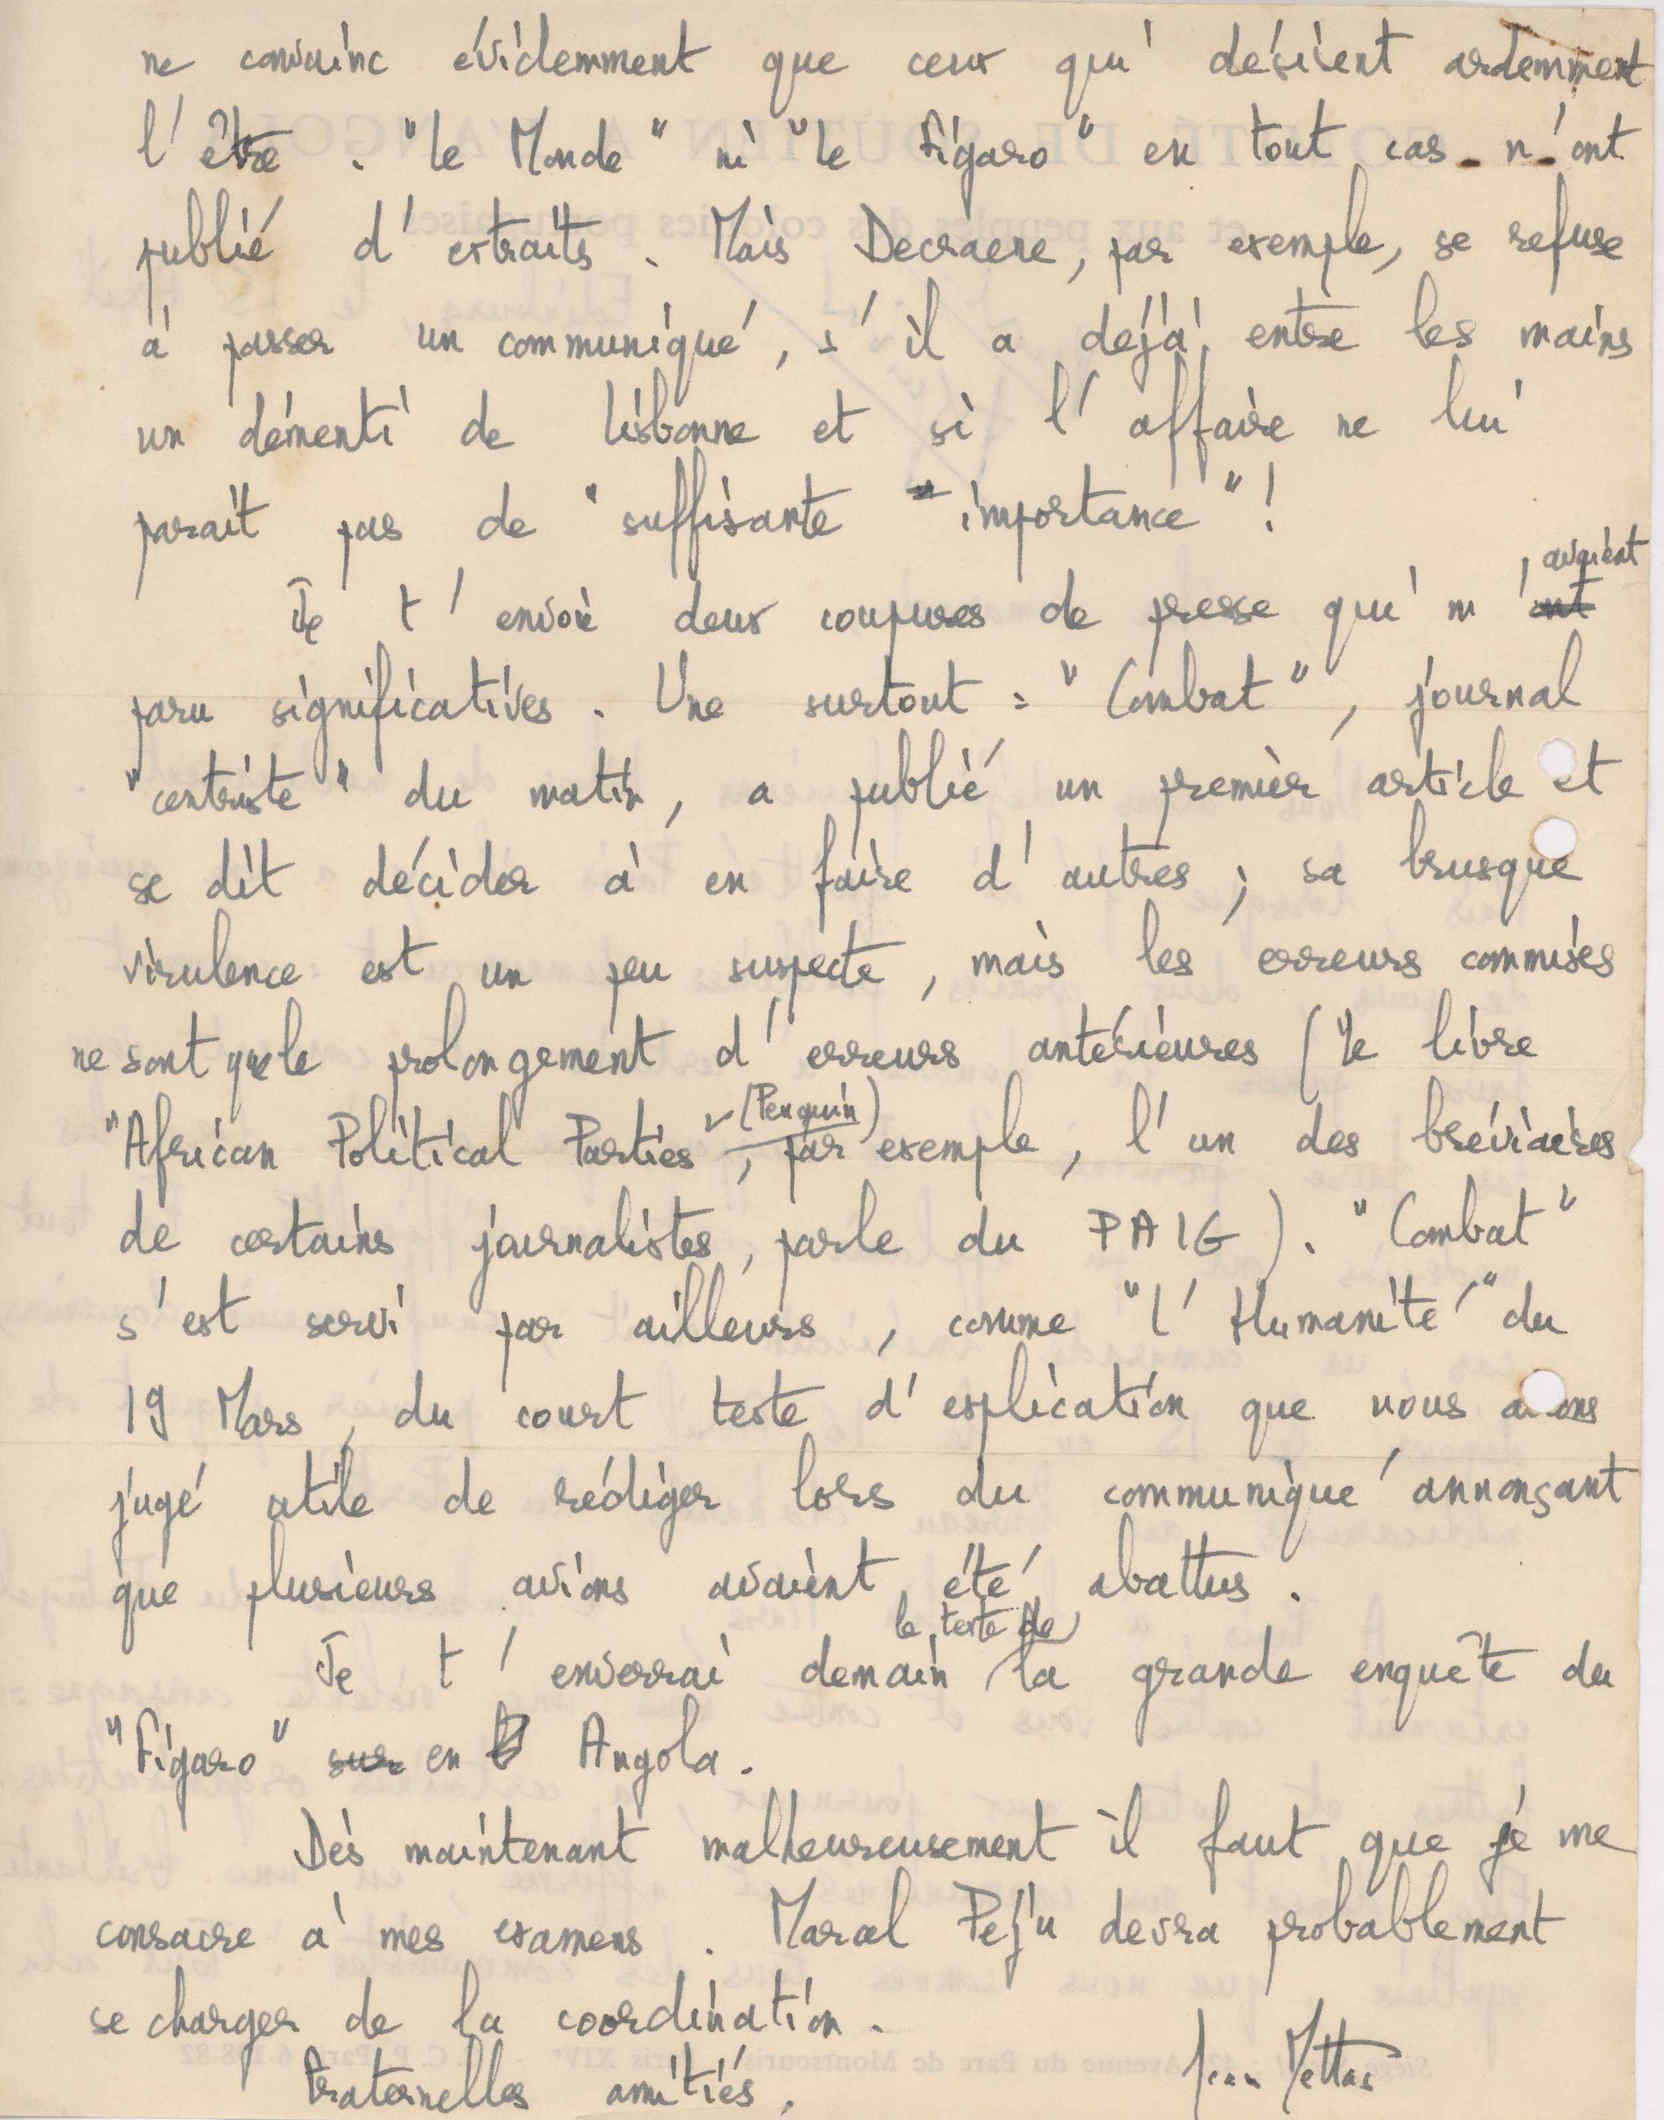 ne convainc évidemment que ceux qui désirent ardemment
l'être. "le Monde" ni "le Figaro" en tout cas n'ont
publié d'extraits. Mais Decraene, par exemple, se refuse
à passer un communiqué, s'il a déjà entre les mains
un démenti de Lisbonne et si l'affaire ne lui
parait pas de "suffisante importance"!
Je t'envoie deux coupures de presse qui m'avaient
paru significatives. Une surtout : "Combat", journal
"centriste" du matin, a publié un premier article et
se dit décider à en faire d'autres ; sa brusque
virulence est un peu suspecte, mais les erreurs commises
ne sont que le prolongement d'erreurs antérieures (le livre
"African Political Parties" (Penguin) par exemple, l'un des bréviaires
de certains journalistes, parle du PAIG). "Combat"
s'est servi par ailleurs, comme "l'Humanité" du
19 Mars, du court texte d'explication que nous avons
jugé utile de rédiger lors du communiqué annonçant
que plusieurs avions avaient été abattus.
Je t'enverrai demain le texte de la grande enquête du
"Figaro" sur en Angola.
Dès maintenant malheureusement il faut que je me
consacre à mes examens. Marcel Péju devra probablement
se charger de la coordination.
Fraternelles amitiés.
Jean Mettas